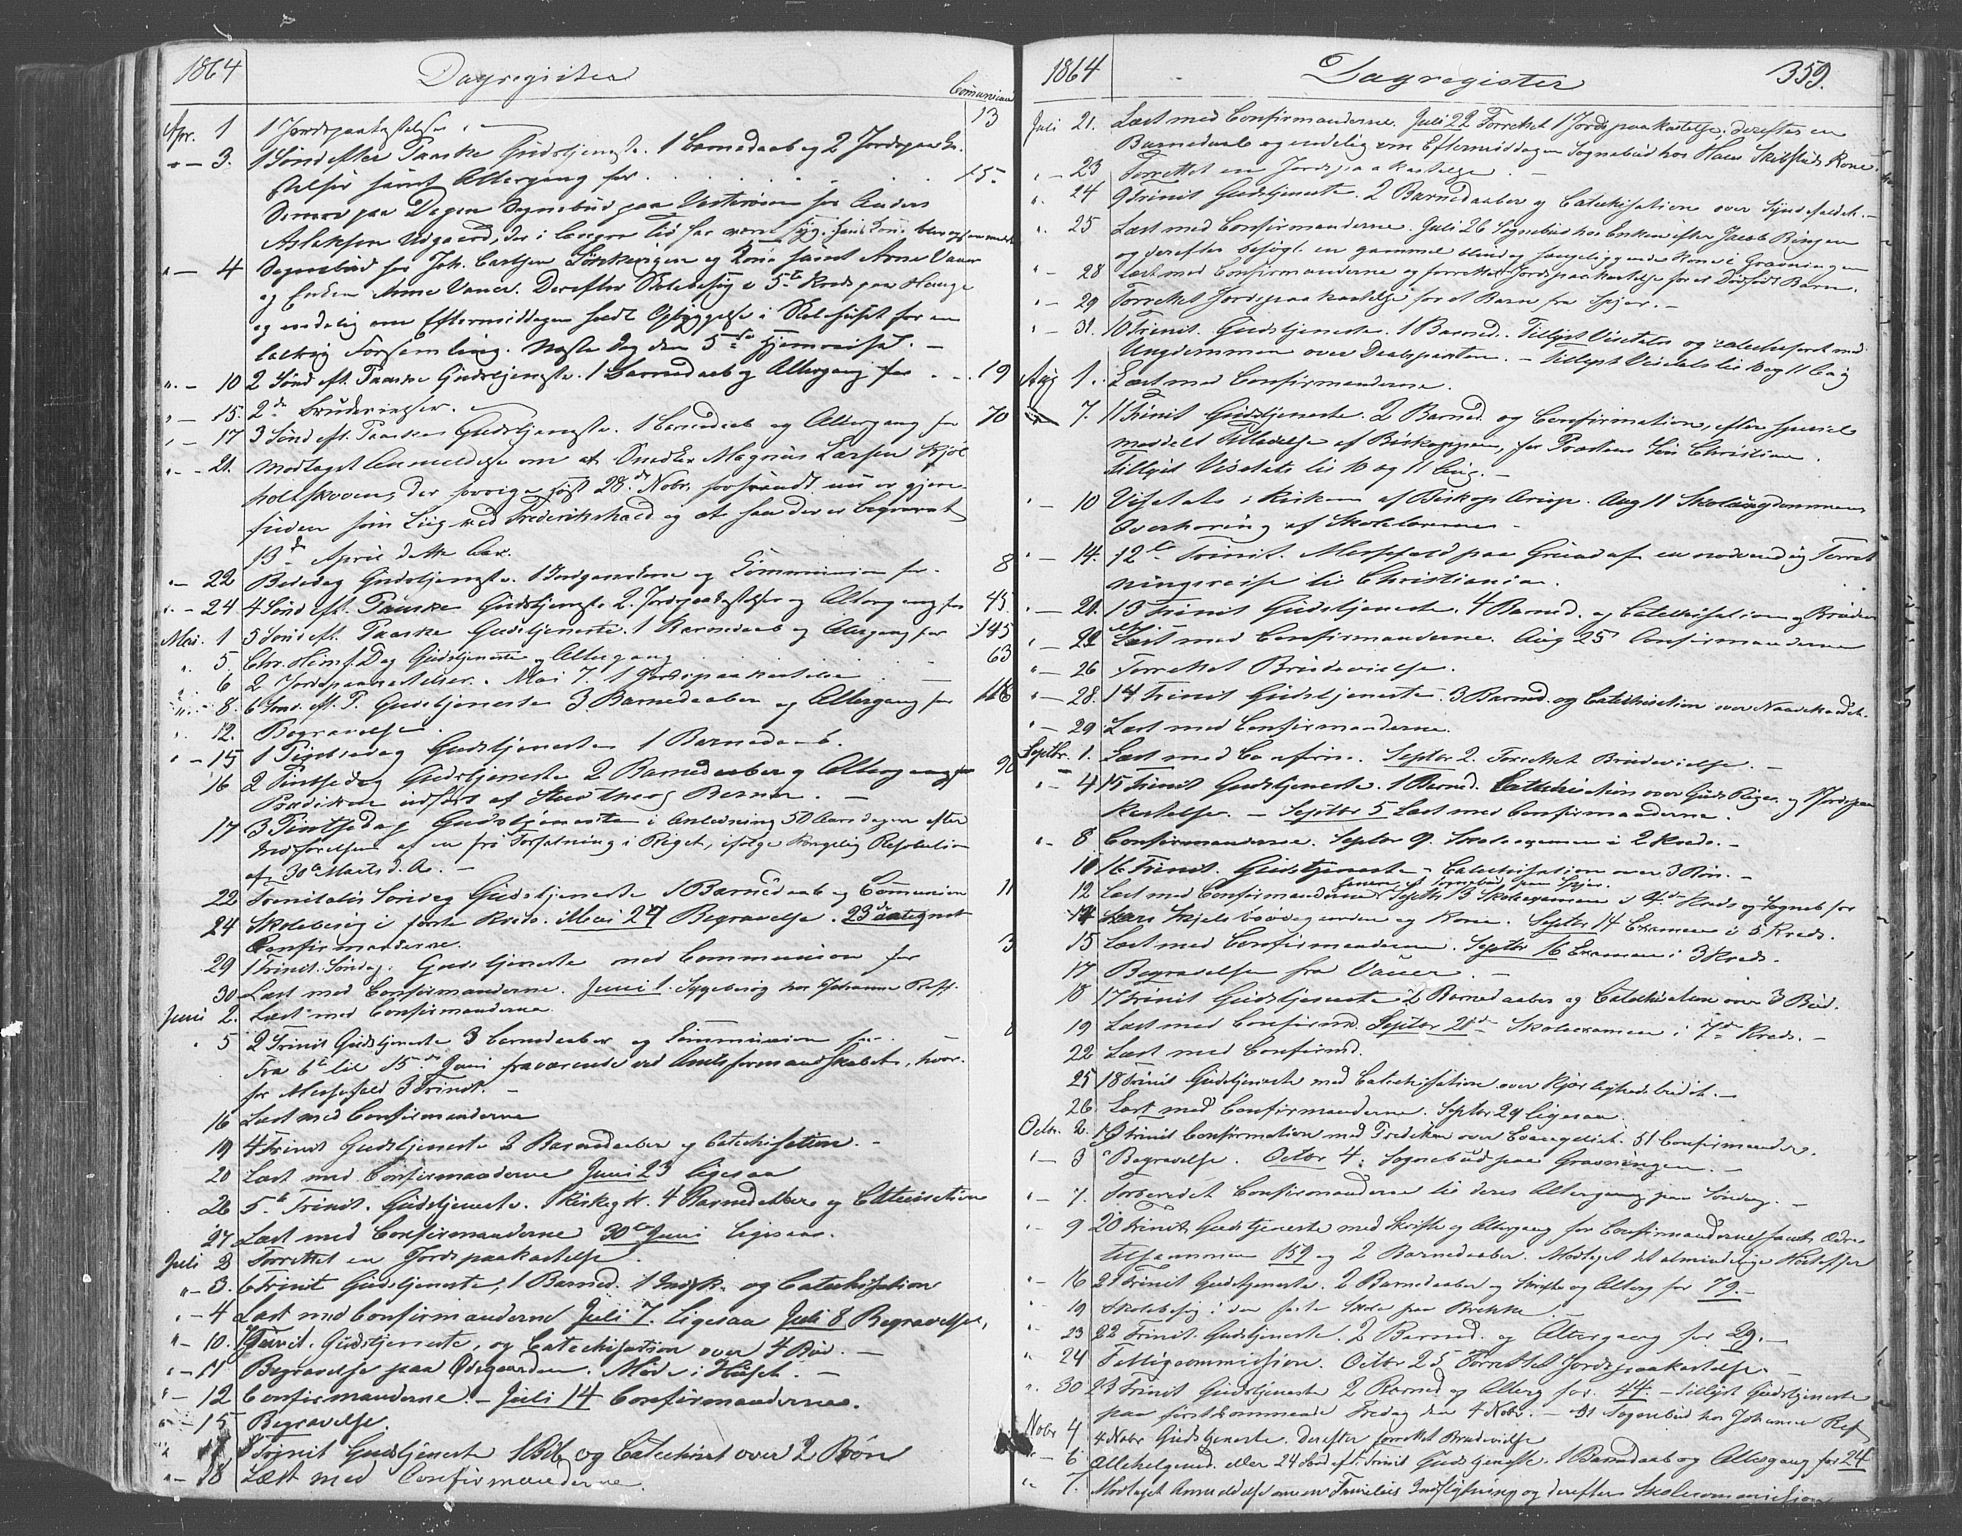 1864 Dagregister Communicant
Apr. 1 1 Jordspaakastelse. 13
" - 3. 1 Sønd efter Paaske Gudstjeneste. 1 Barnedaab og 2 Jordspaaka-
stelser samt Altergang for 15.
Senere paa Dagen Sognebud paa Vesterøen for Anders
Aslaksen Udgaard, der i længere Tid har været syg.
" - 4 Sognebud for Joh. Carlsen og Kone samt Arne Vauer
og Enken Anne Vauer. Derefter Skolebesøg i 5te Kreds paa Hauge
og endelig om Eftermiddagen holdt Opbyggelse i Skolehuset for en
talrig Forsamling. Næste Dag den 5te Hjemreise. -
" - 10 2 Sønd eft. Paaske Gudstjeneste. 1 Barnedaab og Altergang for 19
" - 15. 2de Brudevielser.
" - 17 3 Sønd eft. Paaske Gudstjeneste. 1 Barnedaab og Altergang for 70
" - 21. Modtaget Anmeldelse om at Smeden Magnus Larsen Kjøl-
holtskoven, der forriges Høst 28de Nobr. forsvandt nu er gjen-
funden som Liig ved Frederikshald og at han der er begravet
13de April dette Aar.
" - 22 Bededag Gudstjeneste. 1 Indgangskone og Communion for 8
" - 24 4 Sønd eft. Paaske Gudstjeneste 2 Jordspaakastelser og Altergang for 45.
Mai. 1 5 Sønd eft. Paaske Gudstjeneste. 1 Barnedaab og Altergang for 145
" 5. Chr. Himf. Dag Gudstjeneste og Altergang 63
" 6 2 Jordspaakastelser. Mai 7. 1 Jordspaakastelse
" - 8. 6 Sønd. eft. P. Gudstjeneste 3 Barnedaaber og Altergang for 116
" 12. Begravelse.
" - 15 1 Pintsedag Gudstjeneste 1 Barnedaab.
16 2 Pintsedag Gudstjeneste 2 Barnedaaber og Altergang for 9
Prædiken udført af Stud. theol. Berner. -
17 3 Pintsedag Gudstjeneste i Anledning 50 Aarsdagen efter
Indførelsen af en fri Forfatning i Riget, ifølge Kongelig Resolution
af 30te Marts d. A. -
22 Trinitatis Søndag Gudstjeneste 1 Barnedaab og Communion 11
24 Skolebesøg i første Kreds. Mai 27 Begravelse. 23de antegnet
Confirmanderne.
29 1 Trinit. Søndag. Gudstjeneste med Communion for 3
30 Læst med Confirmanderne. Juni 1. Sygebesøg hos Johanne Reff.
Juni 2. Læst med Confirmanderne.
" 5 2 Trinit Gudstjeneste 3 Barnedaaber og Communion for
Fra 6te til 15de Juni fraværende ved Amtsformandskabet, hvor-
for Messefald 3 Trinit. -
16 Læst med Confirmanderne
19 4 Trinit Gudstjeneste 2 Barnedaaber og Catechisation. -
20 Læst med Confirmanderne Juni 23 ligesaa
26 5te Trinit. Gudstjeneste. 1 Kirkegk. 4 Barnedaaber og Catechisation
27 Læst med Confirmanderne 30te Juni ligesaa.
Juli 2 Forrettet en Jordspaakastelse.
" - 3. 6 Trinit Gudstjeneste, 1 Barned. 1 Indgk. og Catechisation
" - 4 Læst med Confirmanderne Juli 7. ligesaa Juli 8 Begravelse.
" - 10. 7 Trinit. Gudstjeneste, og Catechisation over 4 Bud. -
" - 11 Begravelse paa Ødegaarden. Møde i Huset. -
" - 12 Confirmanderne - Juli 14 Confirmanderne.
" - 15 Begravelse
" 17 8 Trinit Gudstjeneste 1 Bdb. og Catechiset over 2 Bøn
" - 18 Læst med Confirmanderne.
1864 Dagregister 359.
Juli 21. Læst med Confirmanderne. Juli 22 Forrettet 1 Jordspaakastelse, derefter en
Barnedaab og endelig om Eftermiddagen Sognebud hos Hans Kone.
" - 23 Forrettet en Jordspaakastelse. -
" 24 9 Trinit Gudstjeneste. 2 Barnedaaber og Catechisation over Syndefaldet. -
" 25 Læst med Confirmanderne. Juli 26 Sognebud hos Enken efter Jacob Bingen
og derefter besøgt en gammel blind og sengeliggende Kone i Gravningen
" - 28 Læst med Confirmanderne og forrettet Jordspaakastelse for et Dødfødt Barn.
" - 29 Forrettet Jordspaakastelse for et Barn fra Spjær. -
" - 31. 10 Trinit. Gudstjeneste. 1 Barned. Tillyst Visitats og catechiseret med
Ungdommen over Daabspagten. - Tillyst Visitats til 10 og 11 Aug
Aug 1. Læst med Confirmanderne.
7. 11 Trinit Gudstjeneste. 2 Barned. og Confirmation, efter speciel
meddelt Tilladelse af Biskoppen, for Provstens Søn Christian.
Tillyst Visitats til 10 og 11 Aug. -
" - 10 Visitats i Kirken af Biskop Arup. Aug 11 Skoleungdommens
Overhøring af Skolelærerne -
" - 14. 12te Trinit. Messefald paa Grund af en nødvendig Forret-
ningsreise til Christiania.
" - 21. 13 Trinit Gudstjeneste. 4 Barned. og Catechisation og Brudevi-
else.
" - 22 Læst med Confirmanderne. Aug 25 Confirmanderne
" - 26 Forrettet Brudevielse.
" - 28. 14 Trinit Gudstjeneste. 3 Barned. og Catechisation over Naademidl.
" - 29 Læst med Confirmanderne.
Septbr. 1. Læst med Confirm. Septbr 2. Forrettet Brudevielse. -
" - 4 15 Trinit Gudstjeneste. 1 Barned. Catechisation over Guds Rige. og 1 Jordspaa-
kastelse. - Septbr 5 Læst med Confirmanderne.
" - 8 Confirmanderne. Septbr 9. Skoleexamen i 2 Kreds. -
11 16 Trinit. Gudstjeneste - Catechisation over 3 Bøn. -
12 Læst med Confirmanderne Septbr 13 Skoleexamen i 4de Kreds og Sogneb for
14 Lars Skjelsbo og Kone. Septbr 14 Examen i 5 Kreds.
15 Læst med Confirmanderne. Septbr 16 Examen i 3 Kreds.
17 Begravelse fra Vauer. -
18 17 Trinit Gudstjeneste 2 Barnedaaber og Catechisation over 3 Bud.
19 Læst med Confirmd. Septbr 21de Skoleexamen i 7de Kreds. -
22 Læst med Confirmd.
25 18 Trinit Gudstjeneste med Catechisation over Kjærlighedsbudet. -
26. Læst med Confirmanderne. Septbr 29 ligesaa.
Octbr. 2. 19 Trinit Confirmation med Prædiken over Evangeliet. 51 Confirmander.
" - 3 Begravelse. Octbr 4. Sognebud paa Gravningen. -
" - 7. Forberedet Confirmanderne til deres Altergang paa Søndag. -
" - 9 20 Trinit. Gudstjeneste med Skrifte og Altergang for Confirmanderne samt Andre
tilsammen 159 og 2 Barnedaaber. Modtaget det almindelige
" - 16 21 Trinit Gudstjeneste. 2 Barnedaaber og Skrifte og Alterg for 79. -
" - 19 Skolebesøg i den faste Skole paa Brekke. -
" - 23 22 Trinit. Gudstjeneste. 2 Barned. og Altergang for 29. -
" 24 Fattigcommission. Octbr 25 Forrettet Jordspaakastelse.
" 30 23 Trinit Gudstjeneste 2 Barned og Alterg for. 44. - Tillyst Gudstjeneste
paa førstkommende Fredag den 4 Nobr. - 31 Sognebud hos Johanne Ref
Nobr 4 4 Nobr Gudstjeneste. derefter forrettet Brudevielse
" - 6 Allehelgensd. eller 24 Sønd eft. Trinit Gudstjeneste. 1 Barnedaab og Altergang for 24
" 7. Modtaget Anmeldelse om en Families Indflytning og derefter Skolecommission